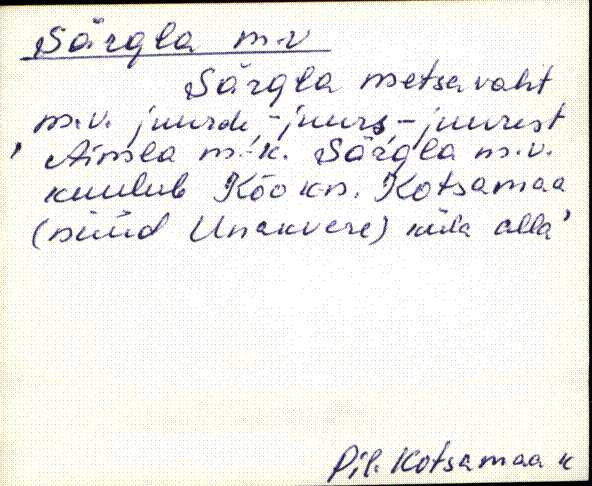 Särgla m.v
Särgla metsavaht
m.v. juurde, -juurs, -juurest
' Aimla m.-k. Särgla m.v.
kuulub Kõo kn. Kotsamaa
(nüüd Unakvere) küla alla'
Pil. Kotsamaa k